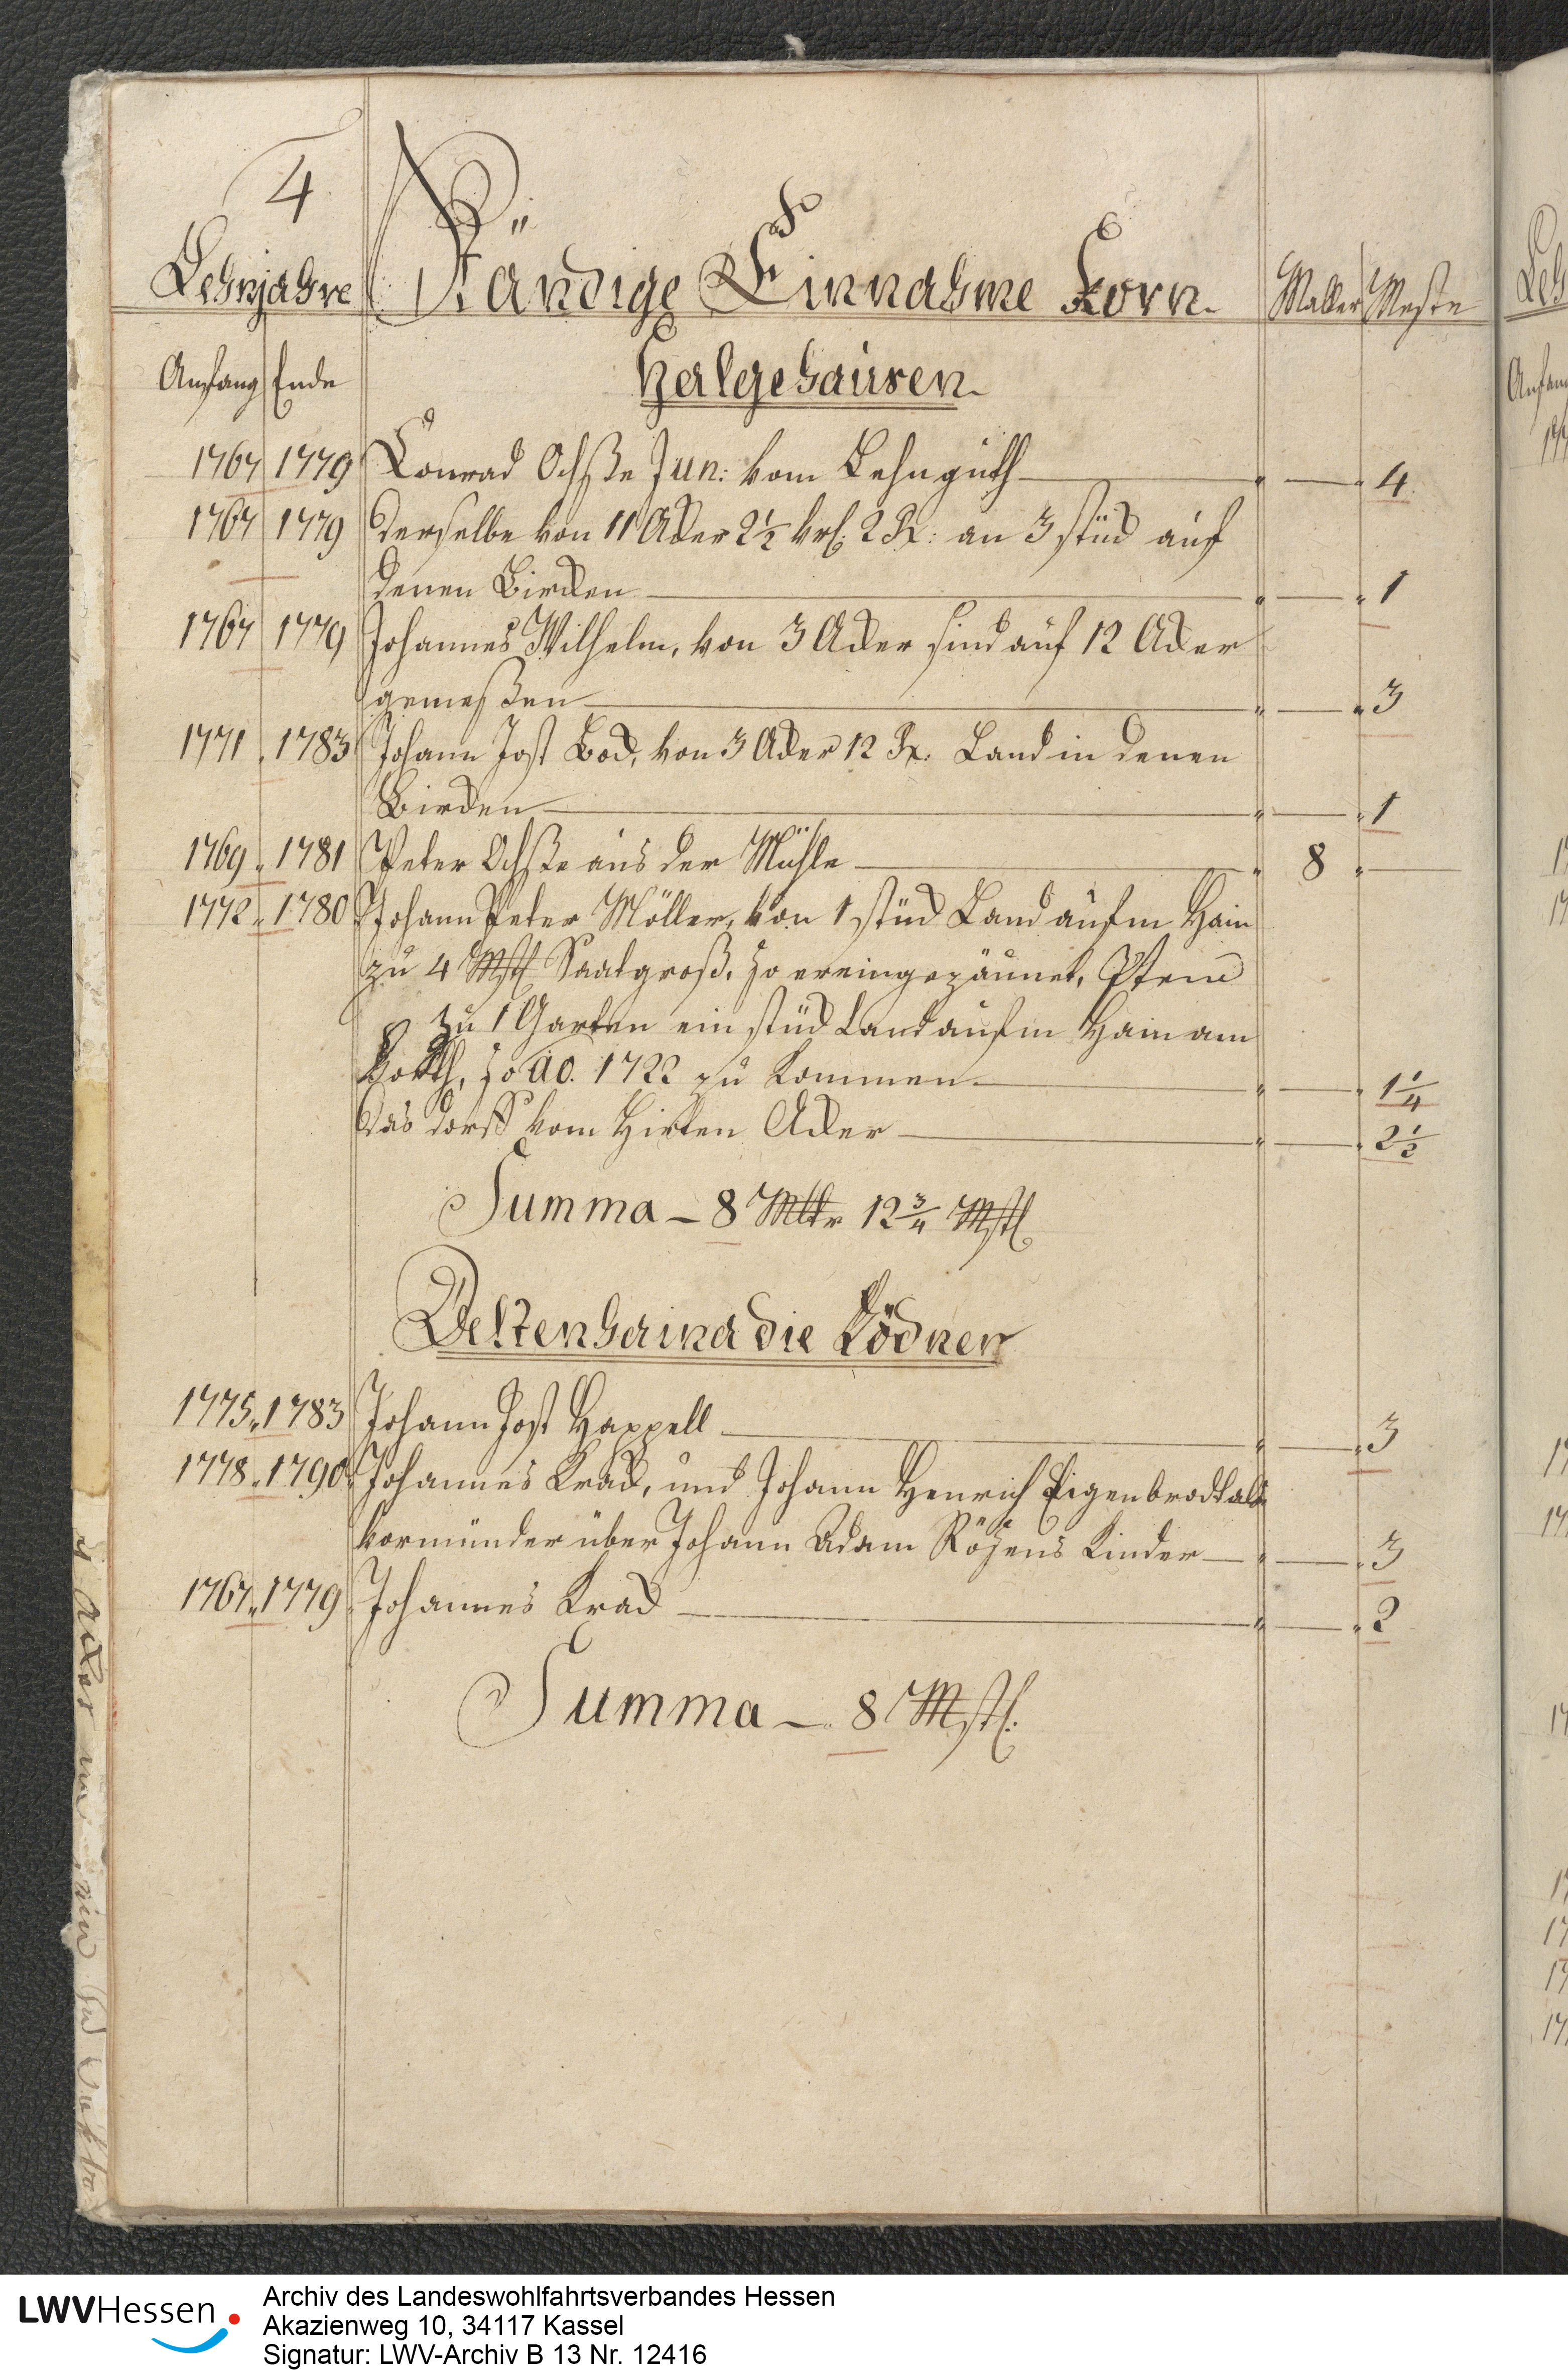 4
Lehnjahre Ständige Einnahme Korn. Malter Meste
Anfang Ende Halgehausen.
1767 1779 Conrad Ochße Jun: vom Lehnguth — 4.
1767 1779 Derselbe von 11 Acker 2½ vrl. 2 R: an 3 stück auf
denen Bircken — 1
1767 1779 Johannes Wilhelm, von 3 Acker sind auf 12 Acker
gemeßen — 3
1771. 1783 Johann Jost Bock, von 3 Acker 12 R. Land in denen
Bircken — 1
1769. 1781 Peter Ochße aus der Mühle — 8 —
1772. 1780 Johann Peter Möller, von 1 stück Land aufm Hain
zu 4 Mstl Saatgroß, so er eingezäunet, Item
zu 1 Garten ein stück Land aufm Hain am
so ao. 1722 zu Kommen — 1¼
Das dorff vom Hirten Acker — 2½
Summa — 8 Mltr 12¾ Mstl
Deltenhaina die Ködner
1775. 1783 Johann Jost Happell — 3
1778. 1790 Johannes Krack, und Johann Henrich Eigenbrodt als
vormünder über Johann Adam Rösens Kinder — 3
1767. 1779 Johannes Krack — 2
Summa — 8 Mstl.
LWVHessen
Archiv des Landeswohlfahrtsverbandes Hessen
Akazienweg 10, 34117 Kassel
Signatur: LWV-Archiv B 13 Nr. 12416